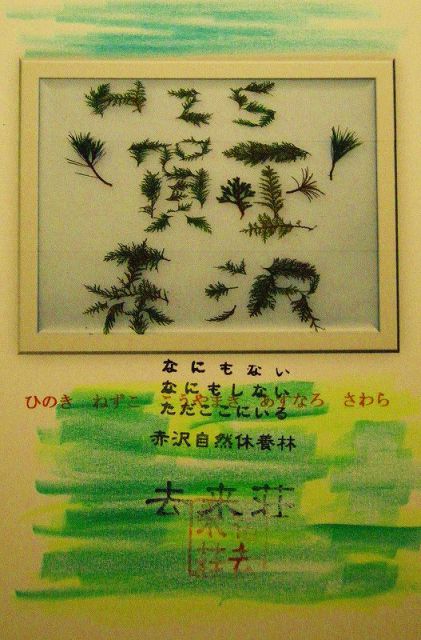 H25
賀正
赤沢
なにもない
なにもしない
ひのき ねずこ こうやまき あすなろ さわら
ただここにいる
赤沢自然休養林
去来荘